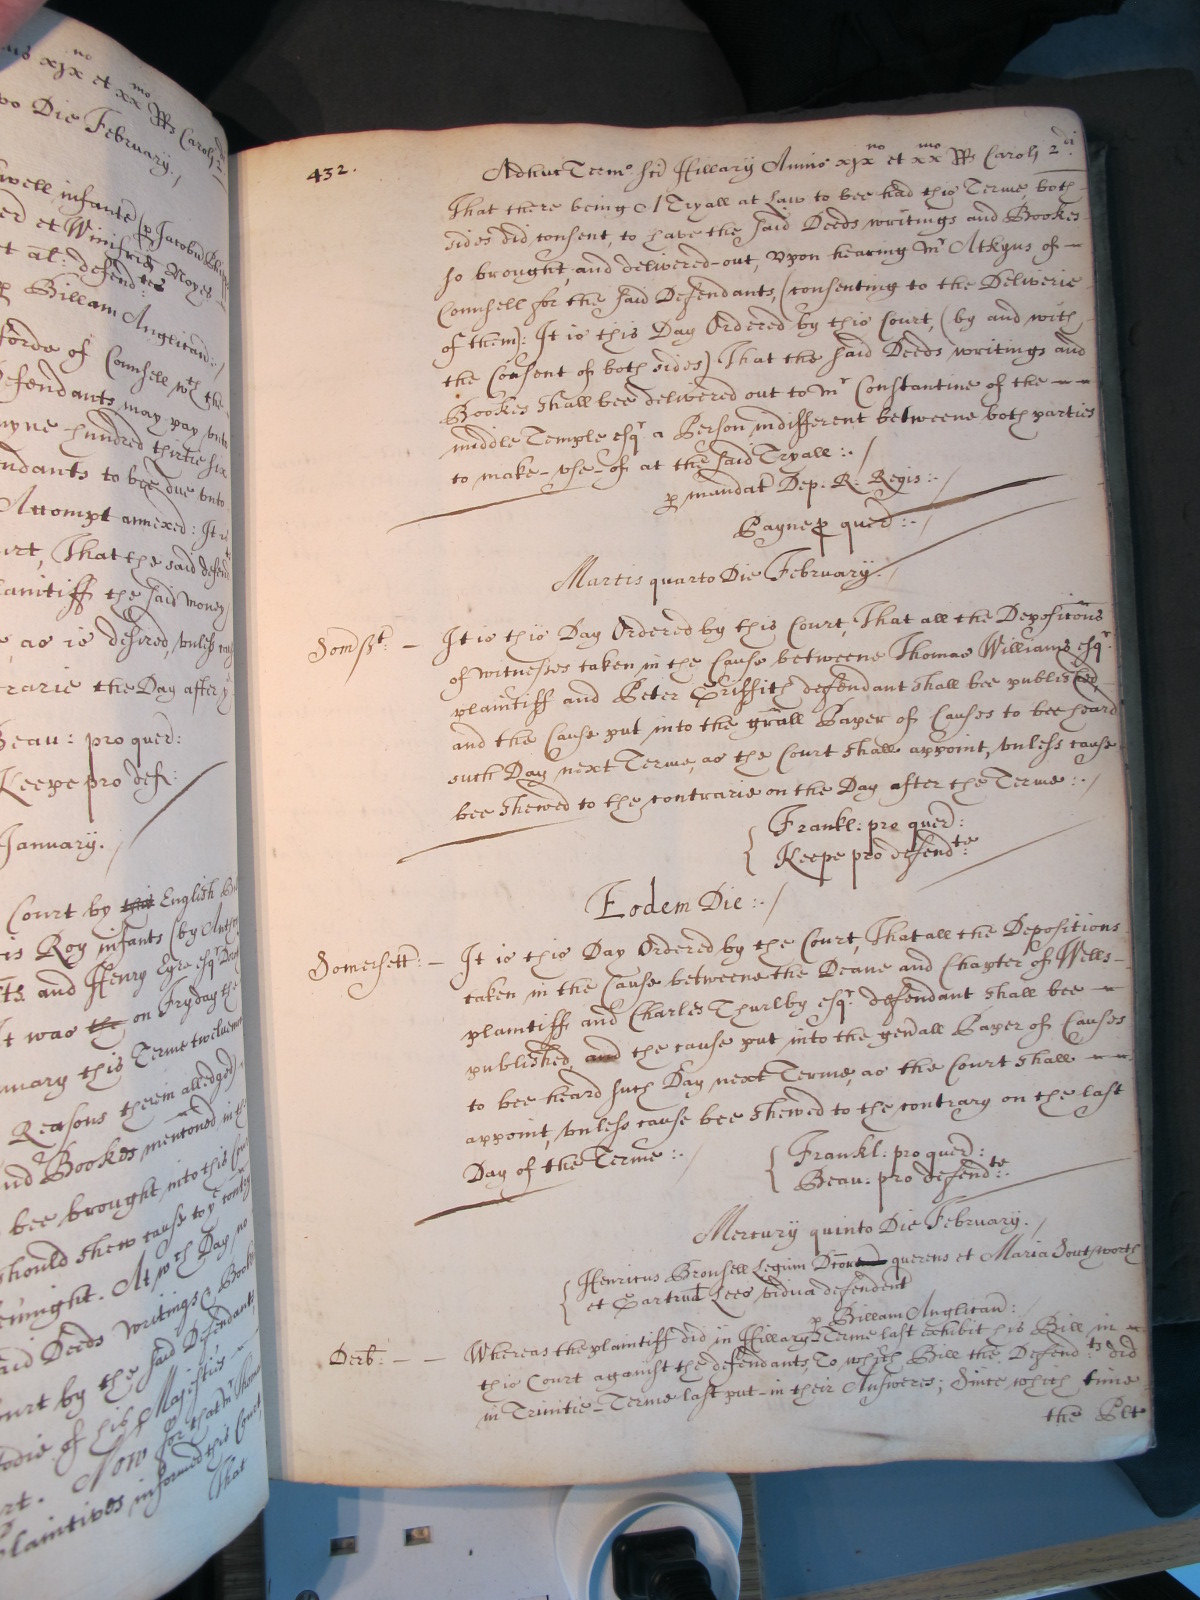 no mo
xjx et xx Rs Caroli 2
Die February./
well infante (p Jacobu
ed et Winifrid Noyes
t al: defendtes
p Billam Anglican:/
forde of Counsell wth the
efendants may pay vnto
hundred thirtie six
ndants to bee due vnto
Attempt annexed: It i
rt, That the said defend
laintiff the said money
as is desired, vnles
rarie the Day after ye
Beau: pro quer:
Keepe pro def:
January./
Court by this English
is Roy infants (by
and Henry Eyre esqr
t was the on Fryday the
nuary this Terme
Reasons therein alledged)
nd Bookes mentioned in th
bee brought into this
should shew cause to ye
ennight. At wch Day no
aid Deeds writings & Books
urt by the said Defendants
odie of his Majesties
rt. Now for that Mr Thomas
laintives informed this Court
That
432. Adhuc Termo sci Hillary Anno xjxno et xxmo Rs Caroli 2di
That there being A Tryall at Law to bee had this Terme, both
sides did consent, to have the said Deeds writings and Bookes
so brought, and delivered-out, vpon hearing Mr Atkyns of -
Counsell for the said Defendants, (consenting to the Deliverie
of them): It is this Day Ordered by this Court, (by and with
the Consent of both sides) That the said Deeds writings and
Bookes shall bee delivered out to Mr Constantine of the - -
middle Temple esqr a Person indifferent betweene both parties
to make-vse-of at the said Tryall:./
p mandat Dep. R. Regis:./
Payne p quer:./
Martis quarto Die February./
Somsst: - It is this Day Ordered by this Court, That all the Depositons
of witnesses taken in the Cause betweene Thomas Williams esqr
plaintiff and Peter Griffith defendant shall bee published,
and the Cause put into the grall Paper of Causes to bee heard
such Day next Terme, as the Court shall appoint, vnless cause
bee shewed to the contrarie on the Day after the Terme:./
{ Frankl: pro quer:
Keepe pro defendte:
Eodem Die:./
Somersett: - It is this Day Ordered by the Court, That all the Depositions
taken in the Cause betweene the Deane and Chapter of Wells -
plaintiff and Charles Thurlby esqr defendant shall bee -
published, and the cause put into the gen̄all Paper of Causes
to bee heard such Day next Terme, as the Court shall - -
appoint, vnless cause bee shewed to the contrary on the last
Day of the Terme:./
{ Frankl: pro quer:
Beau: pro defendte:
Mercury quinto Die February./
{ Henricus Brounsell Legum querens et Maria Southworth
et Gartrud Lees vidua defendent
p Billam Anglican:
Derb: - - Whereas the plaintiff did in Hillary Terme last exhibit his Bill in -
this Court against the defendants, To which Bill the Defendts did
in Trinitie-Terme last put-in their Answeres; Since which time
the Plt